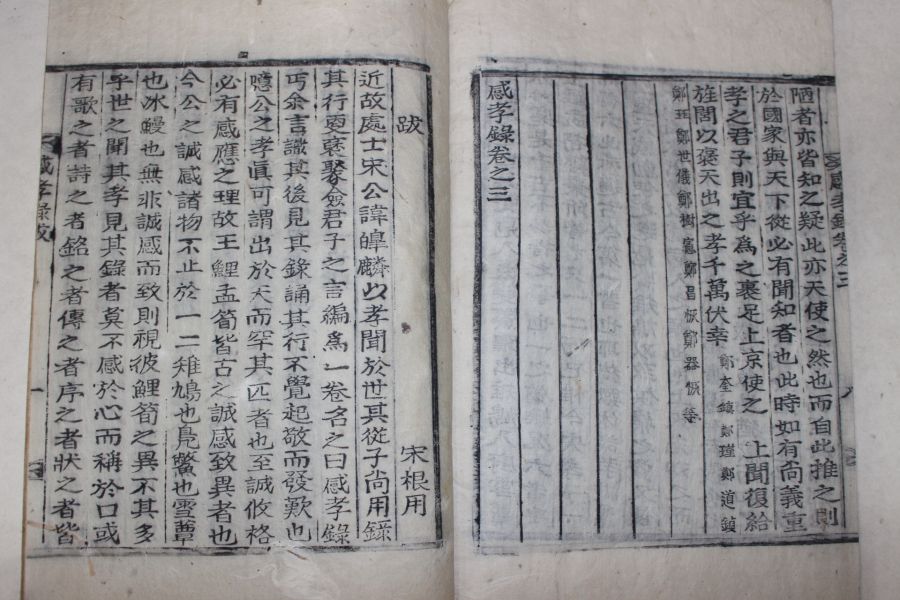 陋者亦皆知之疑此亦天使之然也而自此推之則
於國家與天下從必有聞知者也此時如有尙義重
孝之君子則宜乎爲之裹足上京使之 上聞復給
旌閭以褒天出之孝千萬伏幸 鄭奎鎭 鄭瑾 鄭道鎭
鄭珏 鄭世儀 鄭樹 鄭昌 鄭器 等
感孝錄卷之三
感孝錄卷之三
跋 宋根用
近故處士宋公諱皥麟以孝聞於世其從子尙用錄
其行更裒聚僉君子之言編爲一卷名之曰感孝錄
丐余言識其後見其錄誦其行不覺起敬而發歎也
噫公之孝眞可謂出於天而罕其匹者也至誠攸格
必有感應之理故王鯉孟筍皆古之誠感致異者也
今公之誠感諸物不止於一二雉鳩也鳧鱉也雪蕈
也冰鰻也無非誠感而致則視彼鯉筍之異不其多
乎世之聞其孝見其錄者莫不感於心而稱於口或
有歌之者詩之者銘之者傳之者序之者狀之者皆
感孝錄跋
一